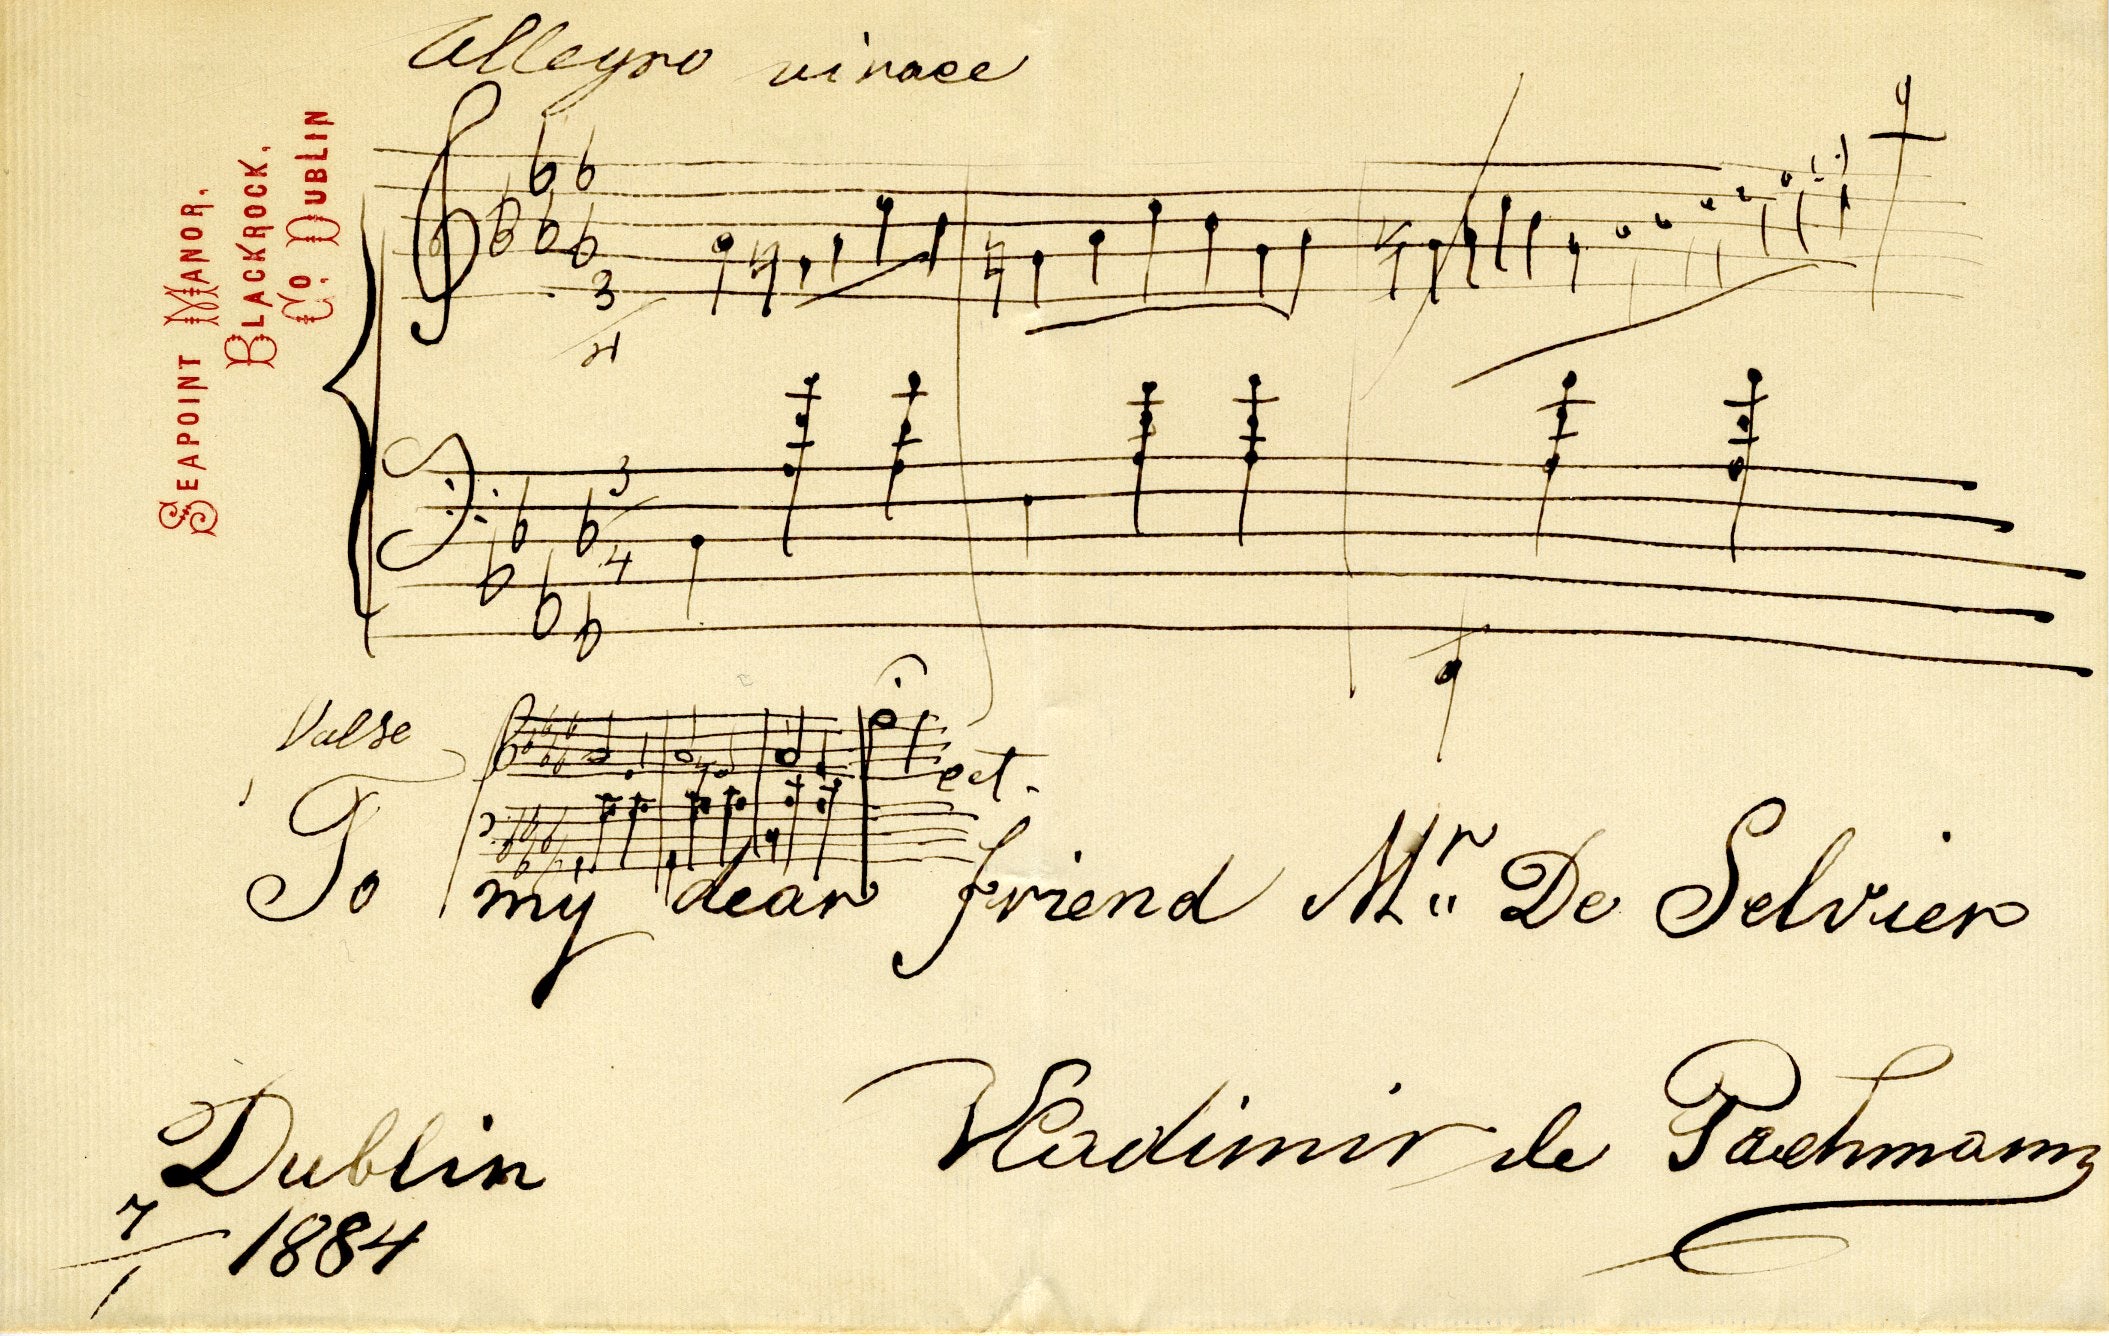 Allegro vivace
SEAPOINT MANOR,
BLACKROCK,
CO. DUBLIN
3
4
3
4
Valse
ect.
To my dear friend Mr. De Selvier
Vladimir de Pachmann
Dublin
7/1 1884